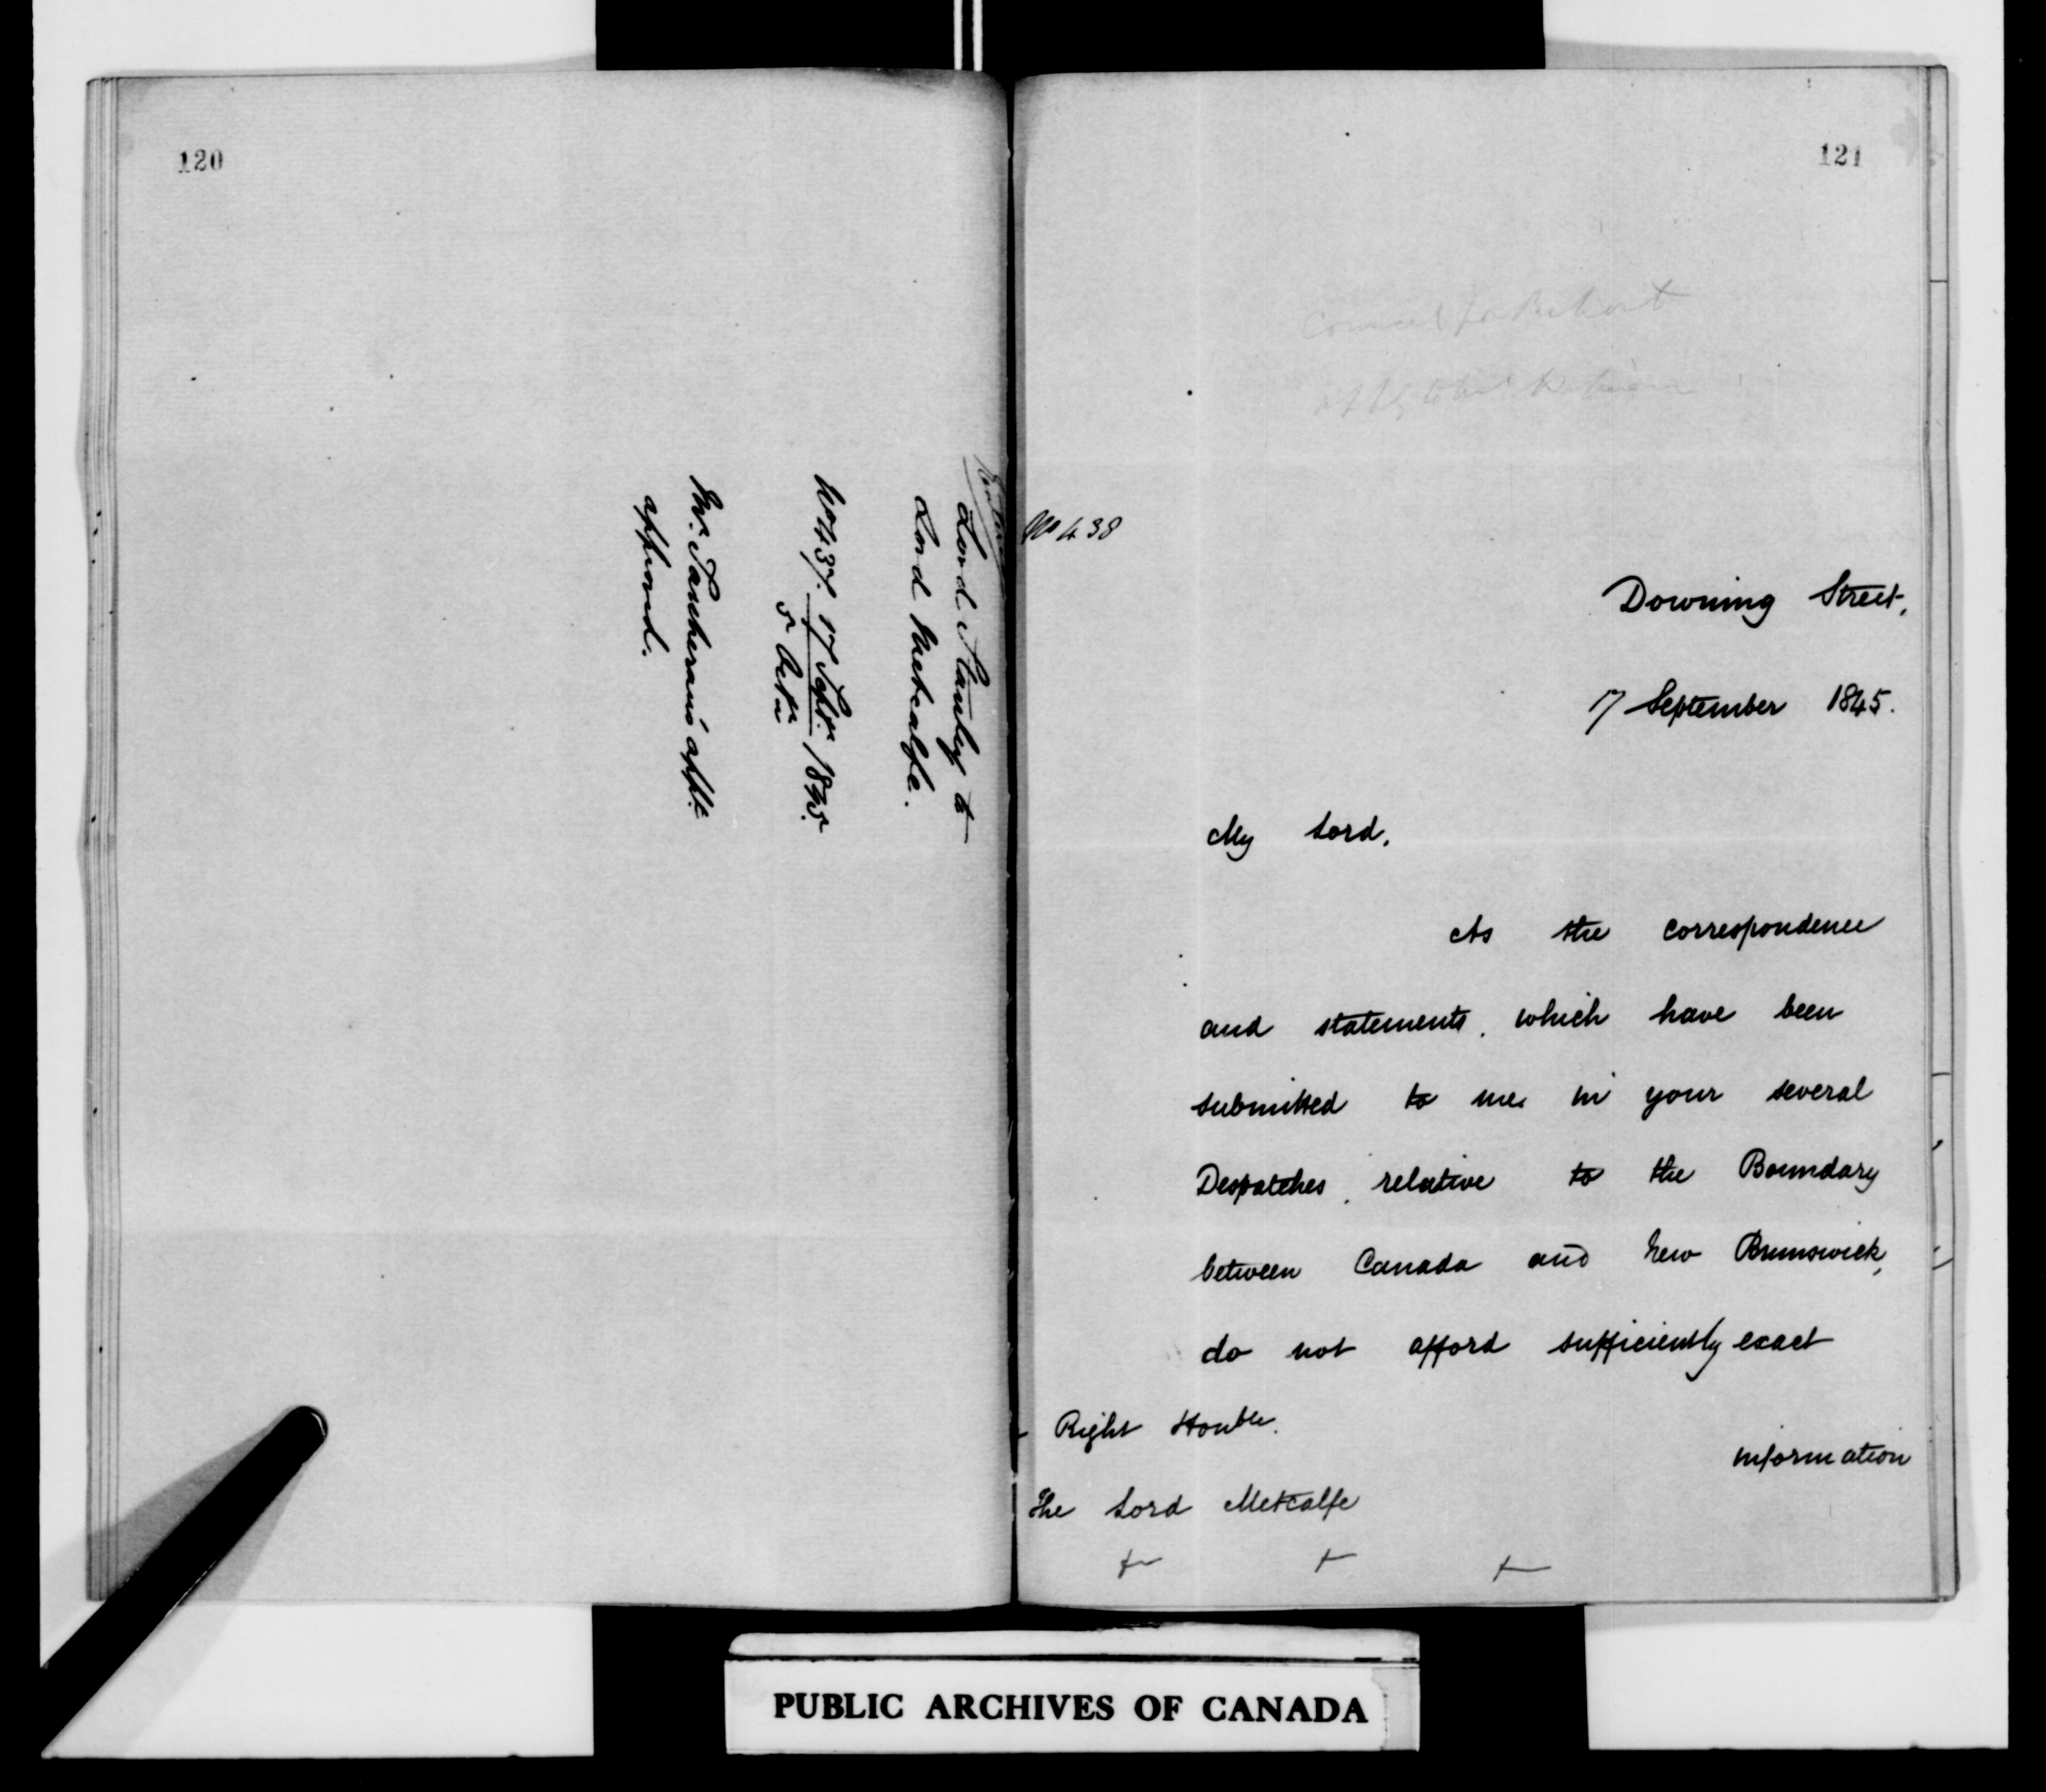 120
Lord Stanley to
Lord Metcalfe.
No 437. 17 Septr. 1845.
5 Octr
Mr. Tascherau's appt.
approved.
121
Council for
No 438
Downing Street,
17 September 1845.
My Lord,
As the correspondence
and statements, which have been
submitted to me in your several
Despatches, relative to the Boundary
between Canada and New Brunswick,
do not afford sufficiently exact
Right Honble.
information
The Lord Metcalfe
PUBLIC ARCHIVES OF CANADA